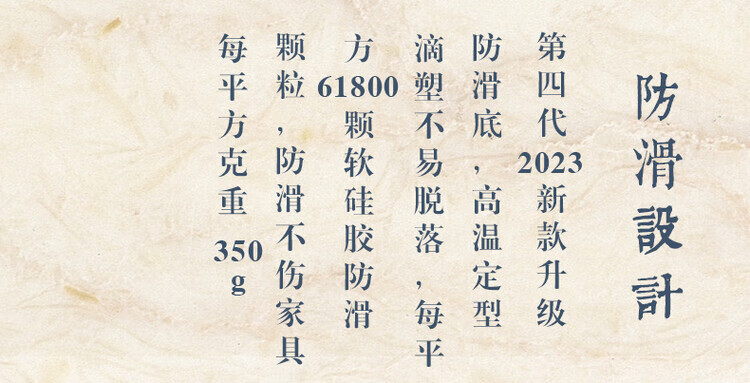 防滑設計
第四代2023新款升级
防滑底,高温定型
滴塑不易脱落,每平
方61800颗软硅胶防滑
颗粒,防滑不伤家具
每平方克重350g